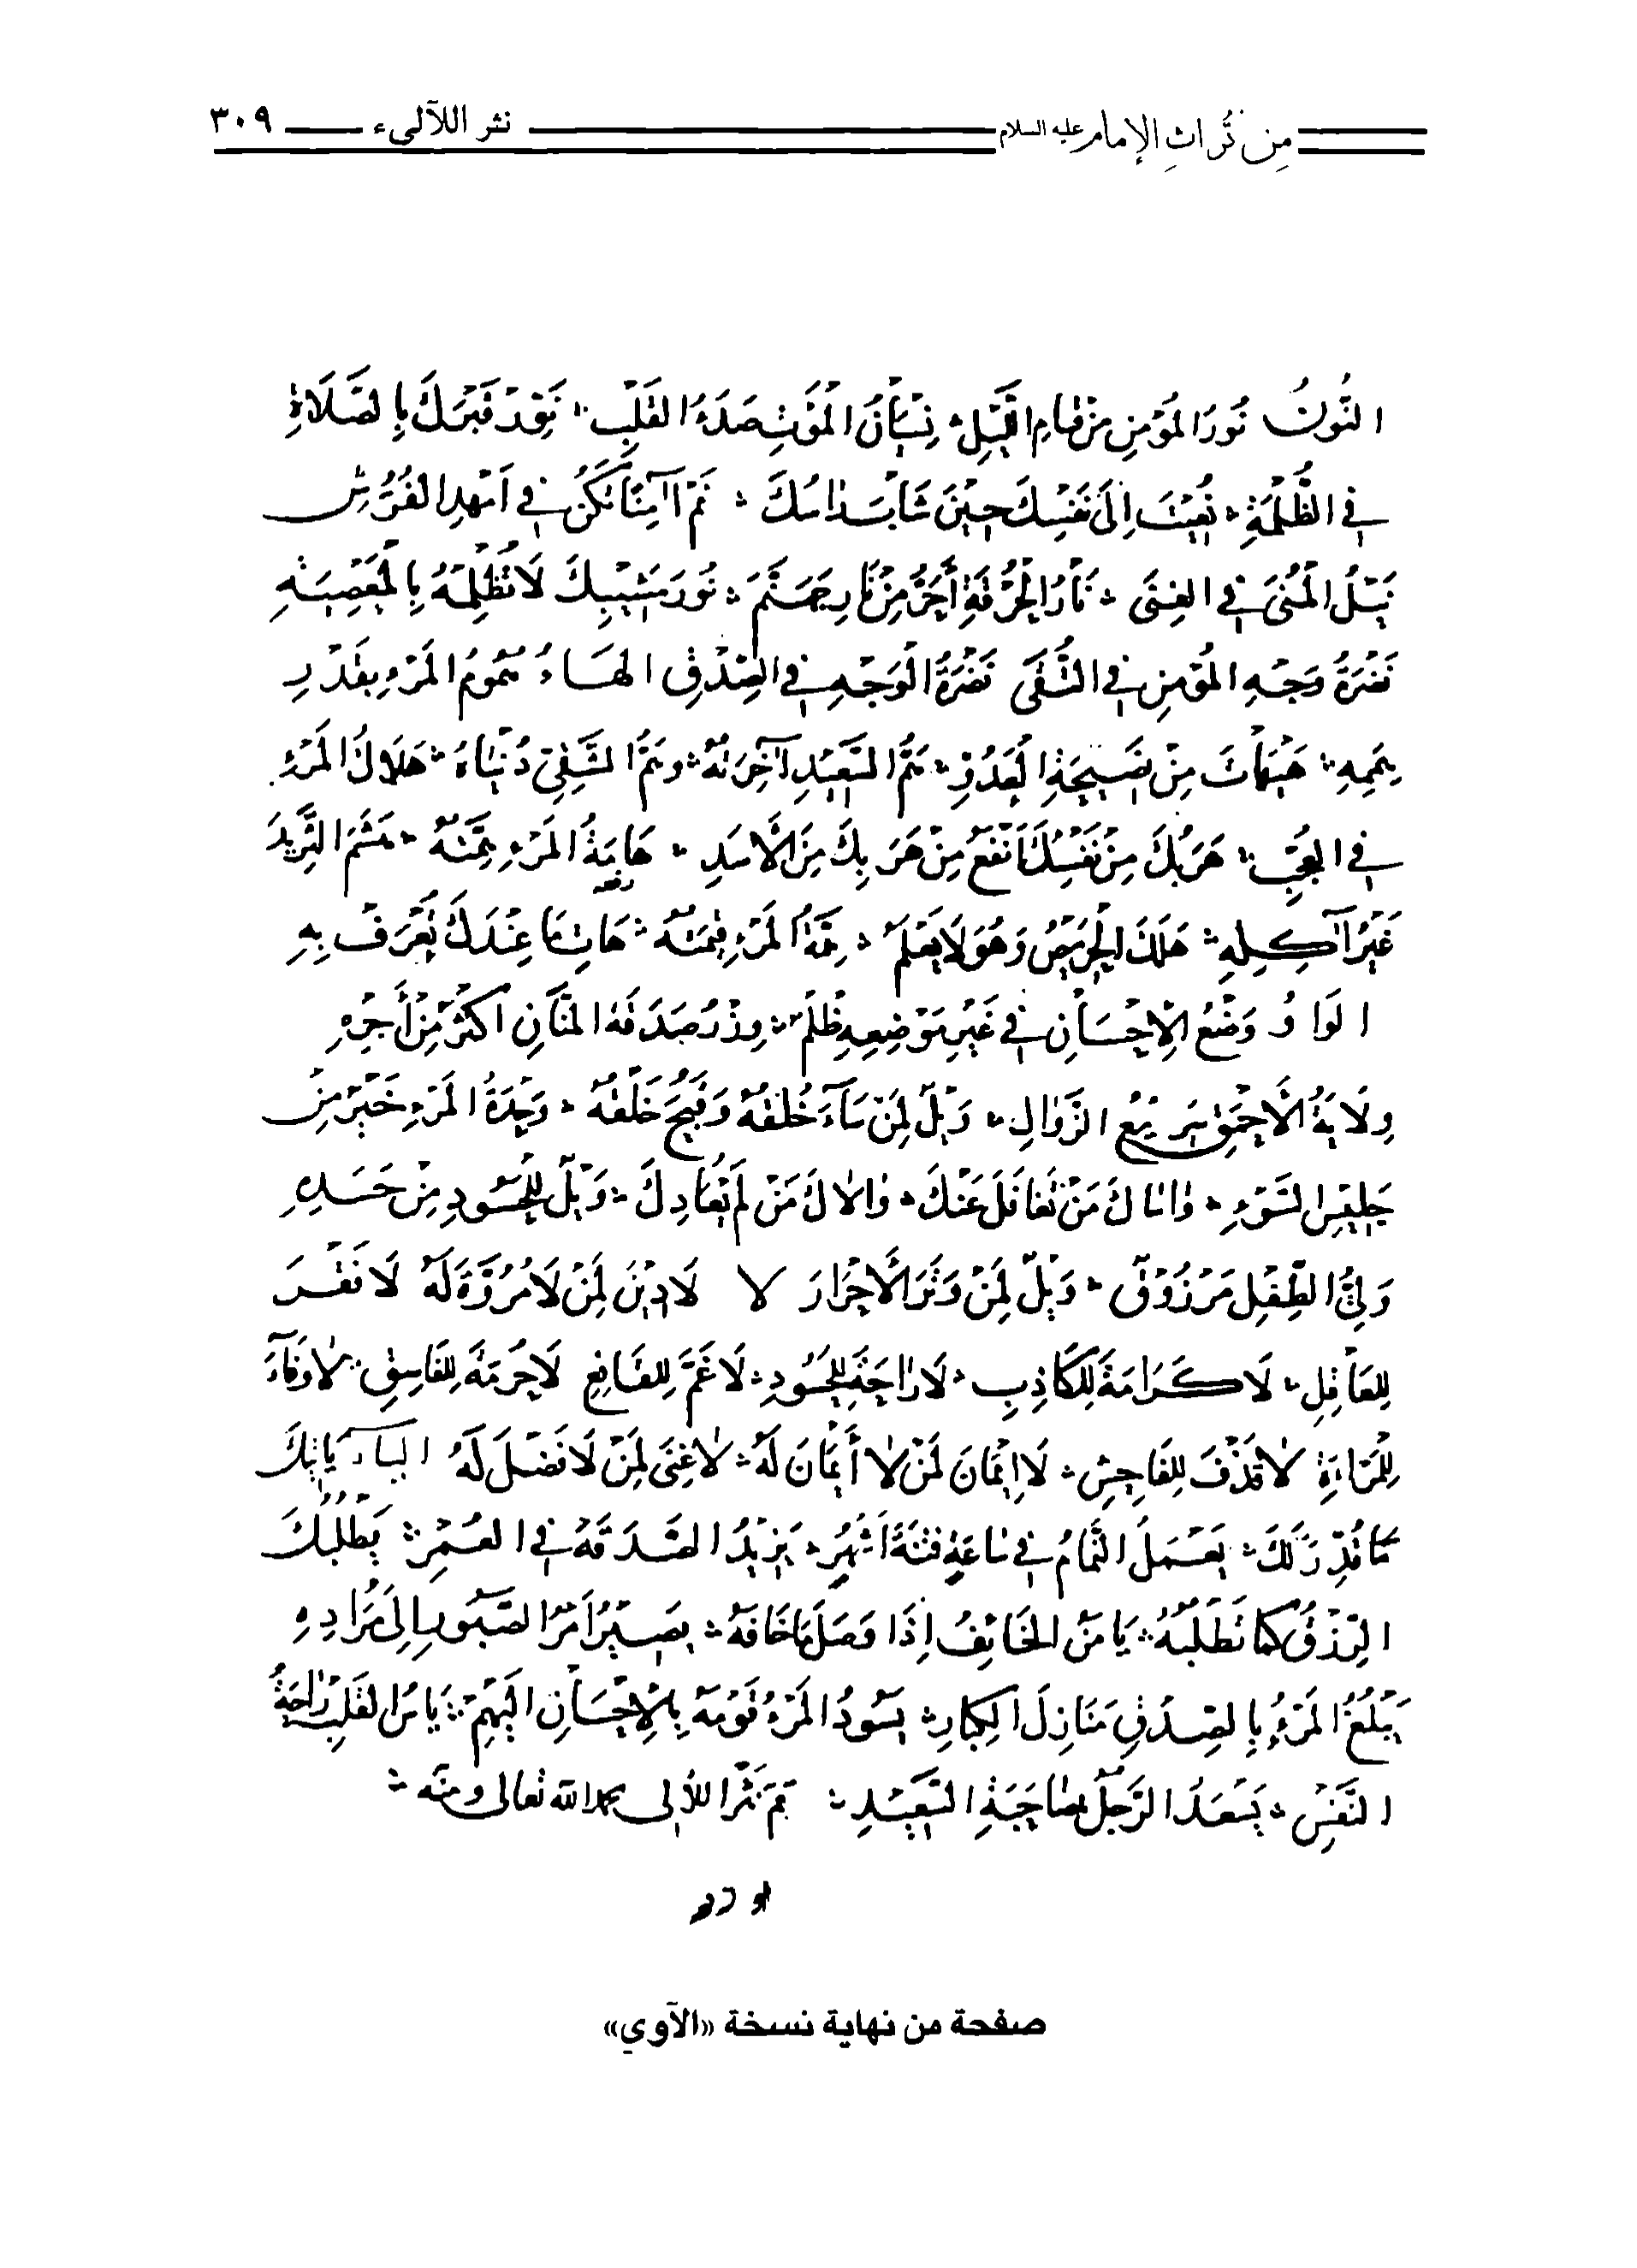 من تراث الإمام عليه السلام نثر اللآلىء ٣٠٩
النُّونُ نُورُ المُؤْمِنِ مِنْ قِيَامِ اللَّيْلِ نِسْيَانُ الْمَوْتِ صَدَءُ القَلْبِ نَوِّرْ قَبْرَكَ بِالصَّلَاةِ
فِي الظُّلْمَةِ نُعِيْتَ اِلَى نَفْسِكَ حِيْنَ شَابَ رَاسُكَ نَمْ آمِنًا تَكُنْ فِي اَمْهَدِ الفُرُشِ
نَيْلُ الْمُنَى فِي الغِنَى نَارُ الْحُرْقَةِ أَحَرُّ مِنْ نَارِ جَهَنَّمَ نُورُ مَشِيْبِكَ لَا تُظْلِمْهُ بِالْمَعْصِيَةِ
نَضْرَةُ وَجْهِ المُؤْمِنِ فِي التُّقَى نَضْرَةُ الْوَجْهِ فِي الصِّدْقِ الهَاءُ هُمُومُ المَرْءِ بِقَدْرِ
هِمَمِهِ هَيْهَاتَ مِنْ نَصِيْحَةِ الْعَدُوِّ هَمُّ السَّعِيْدِ آخِرَتُهُ وهَمُّ الشَّقِيِّ دُنْيَاهُ هَلَاكُ الْمَرْءِ
فِي العُجْبِ هَرَبُكَ مِنْ نَفْسِكَ أَنْفَعُ مِنْ هَرَبِكَ مِنَ الأَسَدِ المَرْءِ هِمَّتُهُ هَشَمَ الثَّرِيْدَ
غَيْرُ آكِلِهِ هَلَكَ الْحَرِيْصُ وَهُوَ لَا يَعْلَمُ هِمَّةُ الْمَرْءِ قِيْمَتُهُ هَاتِ مَا عِنْدَكَ تُعْرَفْ بِهِ
الوَاوُ وَضْعُ الإِحْسَانِ فِي غَيْرِ مَوْضِعِهِ ظُلْمٌ وِزْرُ صَدَقَةِ المَنَّانِ اَكْثَرُ مِنْ أَجْرِهِ
وِلَايَةُ الأَحْمَقِ سَرِيْعُ الزَّوَالِ وَيْلٌ لِمَنْ سَاءَ خُلْقُهُ وَقَبُحَ خَلْقُهُ وَحْدَةُ المَرْءِ خَيْرٌ مِنْ
جَلِيْسِ السُّوْءِ وَاسَاكَ مَنْ تَغَافَلَ عَنْكَ وَالَاكَ مَنْ لَمْ يُعَادِكَ وَيْلٌ لِلْحَسُودِ مِنْ حَسَدِهِ
وَلِيُّ الطِّفْلِ مَرْزُوْقٌ وَيْلٌ لِمَنْ وَتَرَ الأَحْرَارَ لا لَا دِيْنَ لِمَنْ لَا مُرُوَّةَ لَهُ لَا فَقْرَ
لِلعَاقِلِ لَا كَرَامَةَ لِلكَاذِبِ لَا رَاحَةَ لِلْحَسُودِ لَا غَمَّ لِلقَانِعِ لَا حُرْمَةَ لِلفَاسِقِ لَا وَفَاءَ
لِلْمَرْاَةِ لَا قَذْفَ لِلفَاحِشِ لَا اِيْمَانَ لِمَنْ لَا أَمَانَ لَهُ لَا غِنَى لِمَنْ لَا فَضْلَ لَهُ اليَاءُ يَاتِيْكَ
مَا قُدِّرَ لَكَ يَعْمَلُ النَّمَّامُ فِي سَاعَةٍ فِتْنَةَ اَشْهُرٍ يَزِيْدُ الصَّدَقَةُ فِي العُمْرِ يَطْلُبُكَ
الرِّزْقُ كَمَا تَطْلُبُهُ يَامَنُ الخَائِفُ اِذَا وَصَلَ مَا خَافَهُ يَصِيْرُ اَمْرُ الصَّبُورِ اِلَى مُرَادِهِ
يَبْلُغُ الْمَرْءُ بِالصِّدْقِ مَنَازِلَ الكِبَارِ يَسُودُ الْمَرْءُ قَوْمَهُ بِالإِحْسَانِ اِلَيْهِمْ يَاسُ القَلْبِ رَاحَةُ
النَّفْسِ يَسْعَدُ الرَّجُلُ بِمُصَاحَبَةِ السَّعِيْدِ تم نثر اللآلى بحمد الله تعالى ومنه
صفحة من نهاية نسخة «الآوي»